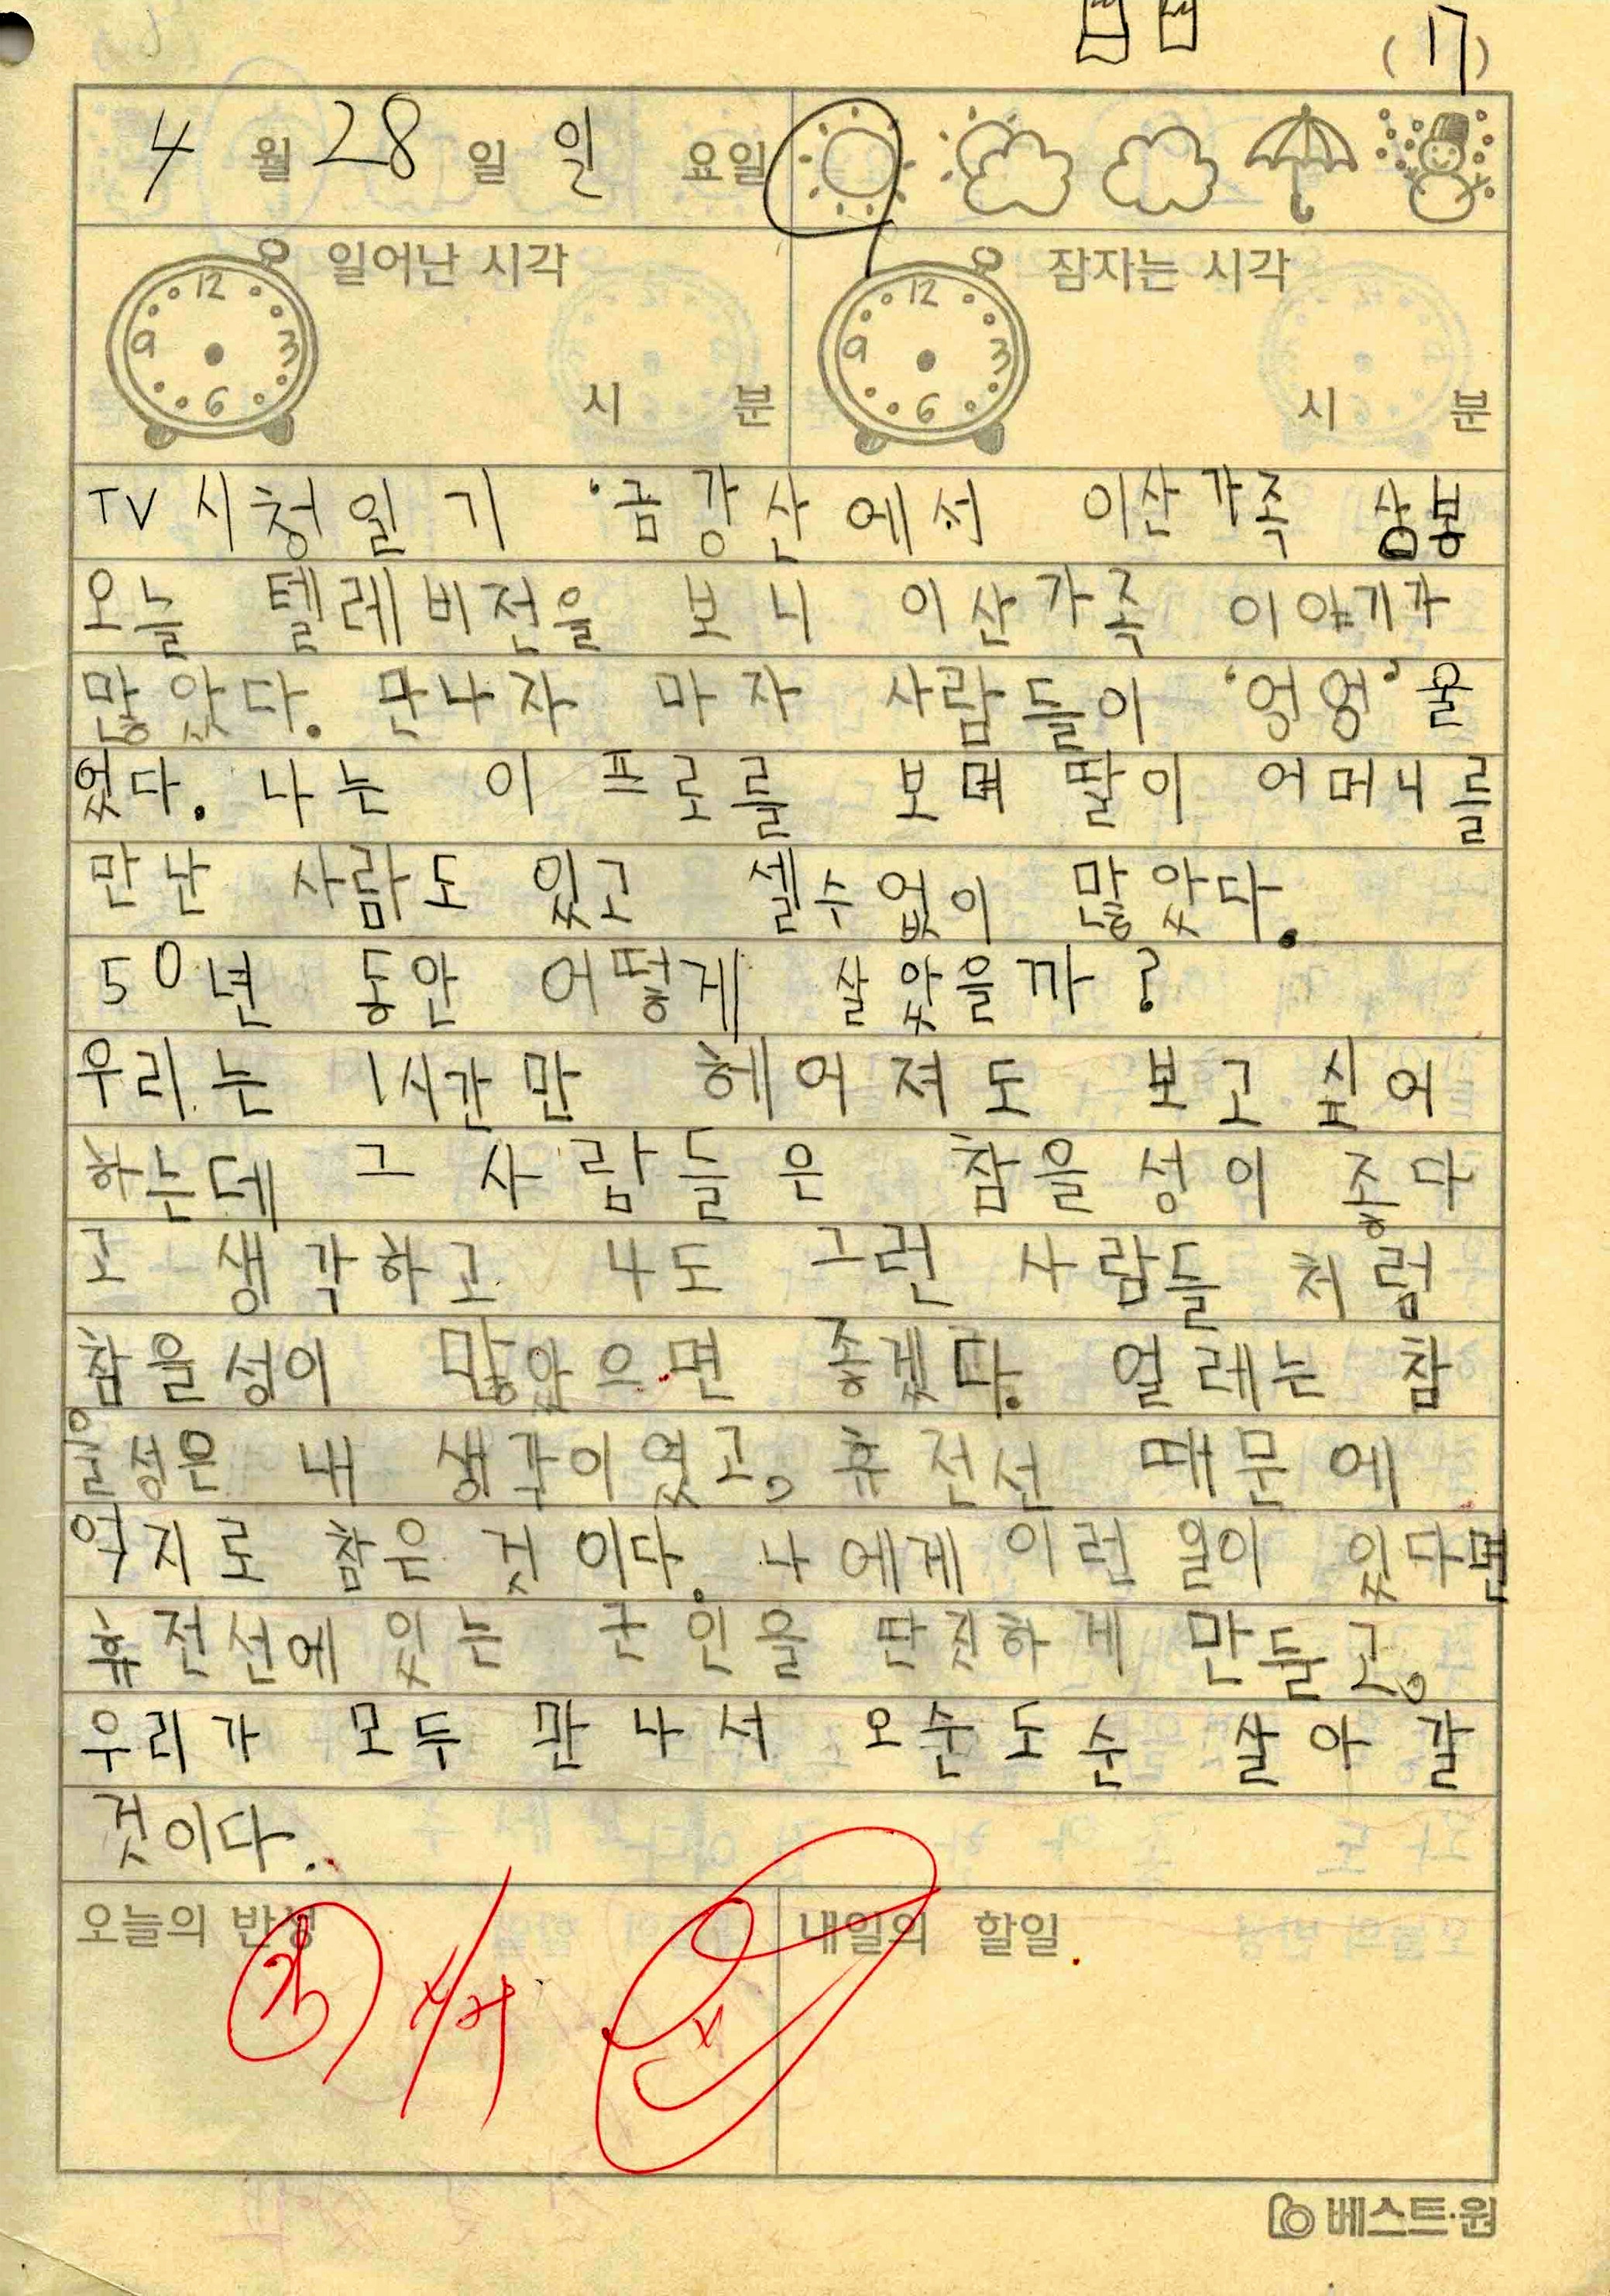 (17)
4 월 28 일 일 요일
일어난 시각 잠자는 시각
12 3 6 9 12 3 6 9
시 분 시 분
TV 시청일기 '금강산에서 이산가족 상봉
오늘 텔레비전을 보니 이산가족 이야기가
많았다. 만나자 마자 사람들이 '엉엉' 울
었다. 나는 이 프로를 보며 많이 어머니를
만난 사람도 있고 셀수없이 많았다.
50년 동안 어떻게 살았을까?
우리는 1시간만 헤어져도 보고 싶어
하는데 그 사람들은 참을성이 좋다
고 생각하고 나도 그런 사람들 처럼
참을성이 많았으면 좋겠다. 얼레는 참
을성은 내 생각이었고, 휴전선 때문에
억지로 참은 것이다. 나에게 이런 일이 있다면
휴전선에 있는 군인을 만들고,
우리가 모두 만나서 오순도순 살아 갈
것이다.
오늘의 반성 내일의 할일
베스트·원